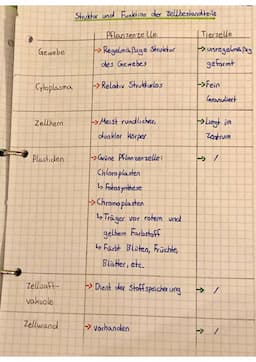 Struktur und Funktion der Zellbestandteile
Pflanzenzelle
Tierzelle
Gewebe
→ Regelmäßige Struktur
des Gewebes
→ unregelmäßig
geformt
Cytoplasma
→ Relativ Strukturlos
→ Fein
Granuliert
Zellkern
→ Meist rundlicher,
dunkler Körper
→ Liegt im
Zentrum
Plastiden
→ Grüne Pflanzenzelle:
Chloroplasten
↳ Fotosynthese
→ Chromoplasten
↳ Träger von rotem und
gelbem Farbstoff
↳ Färbt Blüten, Früchte,
Blätter, etc.
→ /
Zellsaft-
vakuole
→ Dient der Stoffspeicherung
→ /
Zellwand
→ vorhanden
→ /